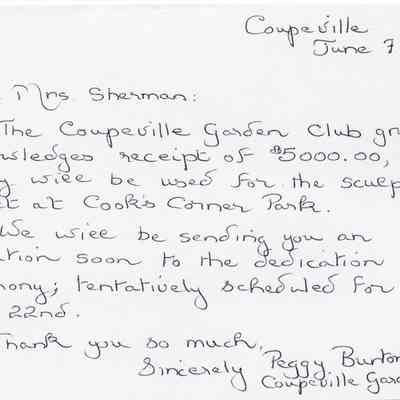 Coupeville
June 7
Mrs. Sherman:
The Coupeville Garden Club gr
wledges receipt of $5000.00,
y will be used for the sculp
ct at Cook's Corner Park.
We will be sending you an
ation soon to the dedication
mony; tentatively scheduled for
22nd.
Thank you so much,
Sincerely Peggy Burton
Coupeville Gard